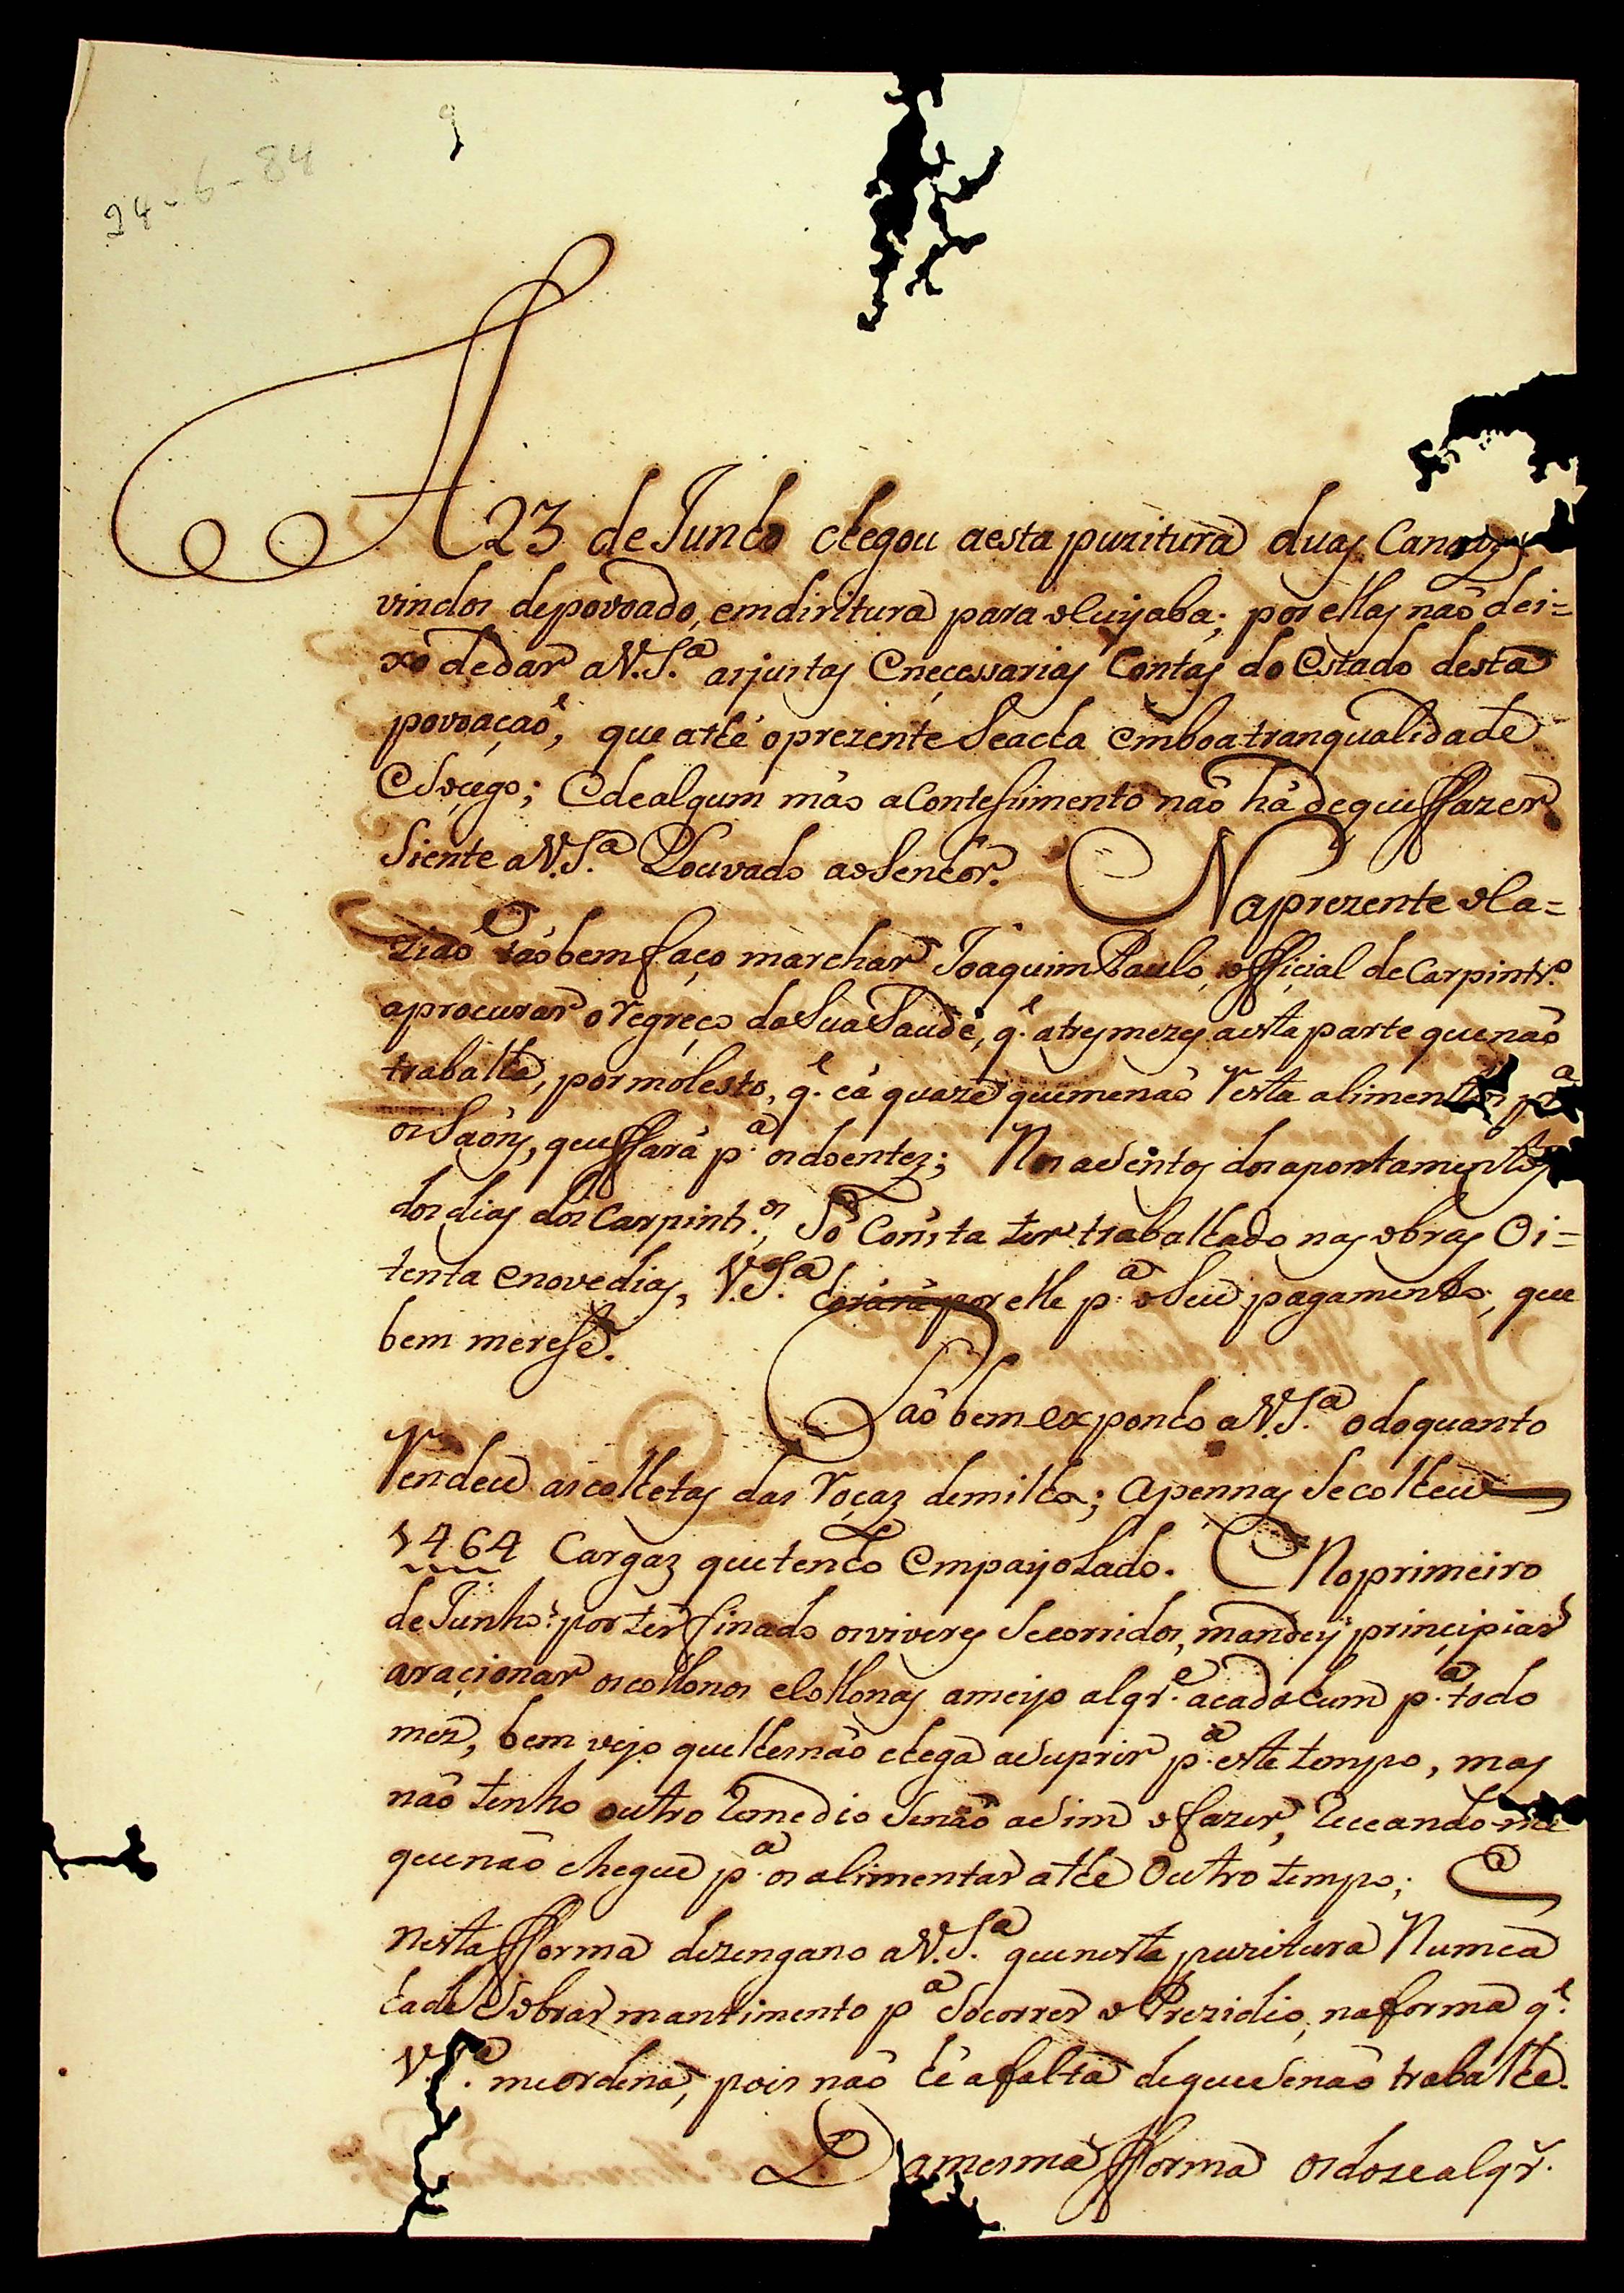 9
24-6-84
A 23 de Junho chegou aesta puzitura duas Canoas
vindos depovoado, emdiritura para oCuyaba; por ellas naõ dei=
xo dedar aV.S.ª asjustas Enecessarias Contas do Estado desta
povoaçaõ, que athé oprezente Seacha Emboatranqualidade
ESocego; Edealgum máo aContesimento naõ há deque ffazer
Siente aV.S.ª Louvado aoSenhor. Naprezente oCa=
ziaõ taõbem faço marchar Joaquim Paulo, official de Carpintr.º
aprocurar oregreço daSuaSaude, q.e atresmezes aesta parte quenaõ
trabalha, pormolesto, q.e cá quaze quemenaõ resta alimentos p.ª
osSaõns, queffará p.ª osdoentez; Nos acentos dosapontamentos
dosdias dos Carpintr.os, Só Consta ter trabalhado nas obras Oi=
tenta enovedias, V.S.ª horará por elle p.ª oSeu pagamento, que
bem merese.
Taõbem exponho aV.S.ª odoquanto
rendeu ascolhetas das roçaz demilho; apennas Secolheu
1464 Cargaz quetenho Empayolado. Noprimeiro
deJunho: por ter finado osviveres Secorridos, mandey principiar
aracionar oscollonos eCollonas ameyo alqr.e acadahum p.ª todo
mez, bem vejo quelhesnaõ chega aSuprir p.ª este tempo, mas
naõ tenho outro remedio Senaõ aSim ofazer, receando-me
quenaõ chegue p.ª osalimentar athe Outro tempo; E
nesta fforma dezengano aV.S.ª quenesta puzitura Numca
hade Sobrar mantimento p.ª Socorrer oPrezidio, naforma q.e
V.S.ª meordena, pois naõ hé afalta dequeSenaõ trabalhe.
Damesma fforma osdozealqr.